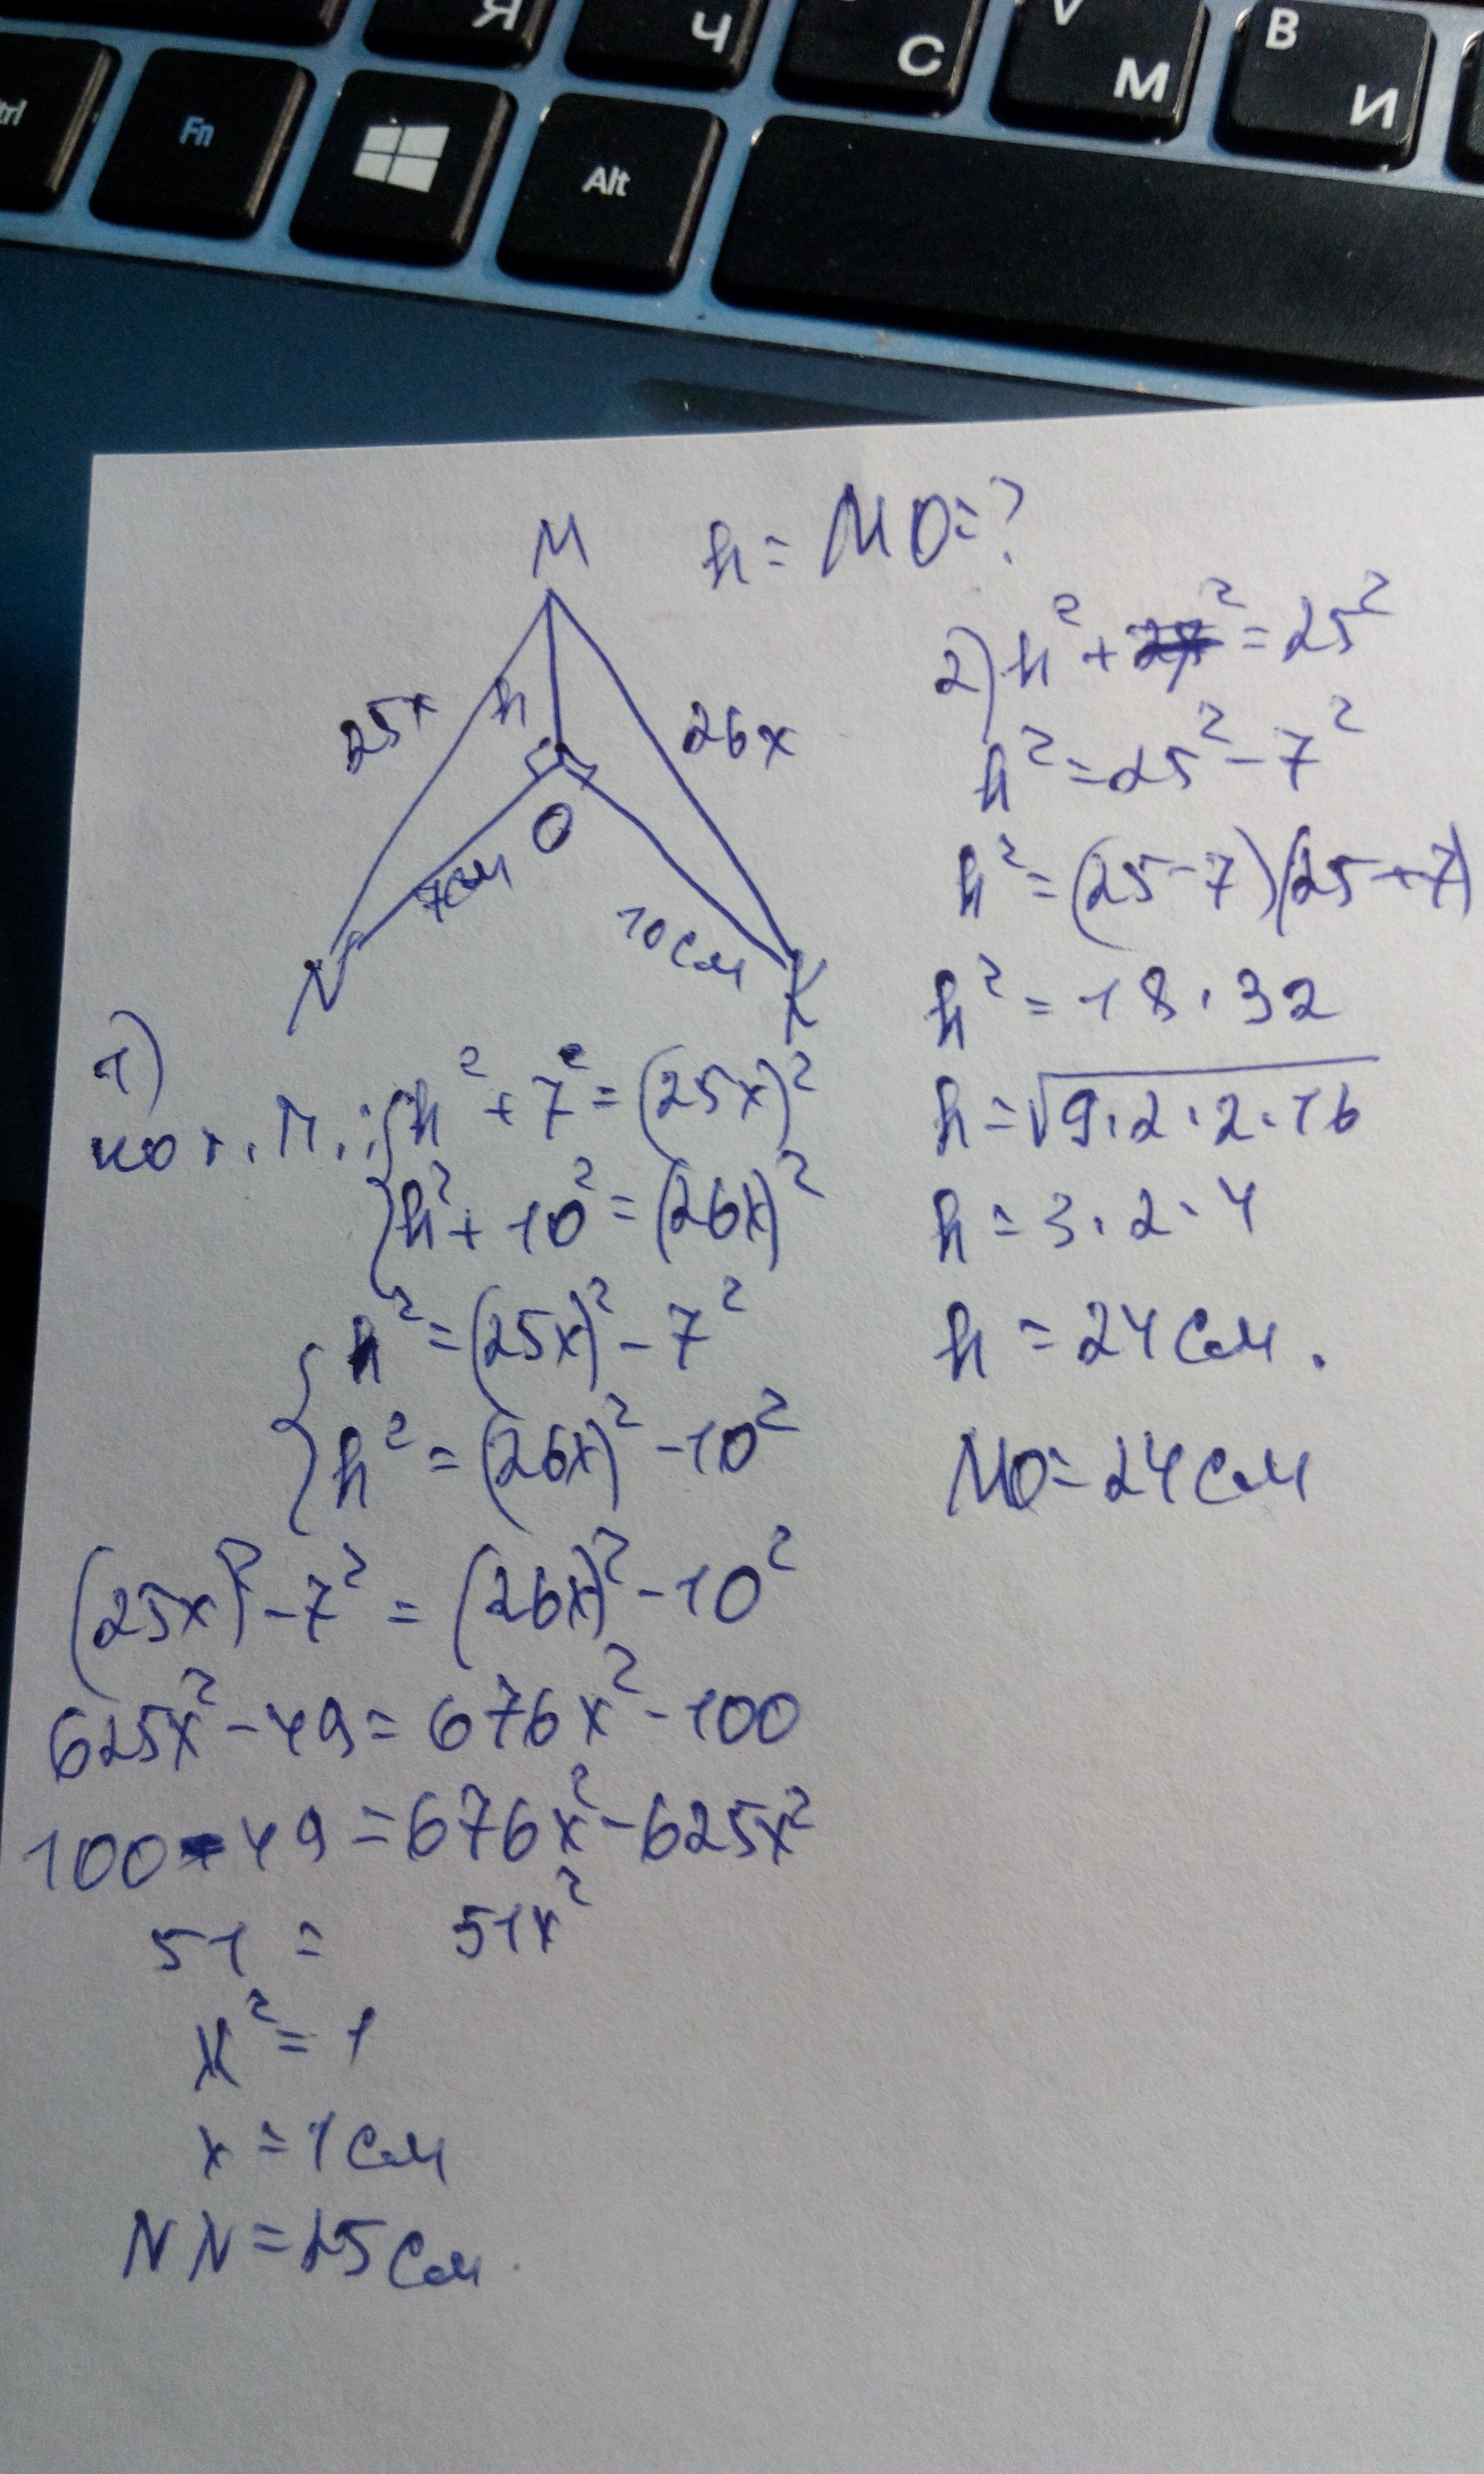 Я
Ч
С
V
М
В
И
trl
Fn
Alt
M
h = MO = ?
25x
h
26x
O
7см
10 см
N
K
1)
по т. П.:
h² + 7² = (25x)²
h² + 10² = (26x)²
h² = (25x)² - 7²
h² = (26x)² - 10²
(25x)² - 7² = (26x)² - 10²
625x² - 49 = 676x² - 100
100 - 49 = 676x² - 625x²
51 = 51x²
x² = 1
x = 1 см
NN = 25 см.
2) h² + ² = 25²
h² = 25² - 7²
h² = (25-7)(25+7)
h² = 18 · 32
h = √9·2·2·16
h = 3·2·4
h = 24 см.
MO = 24 см